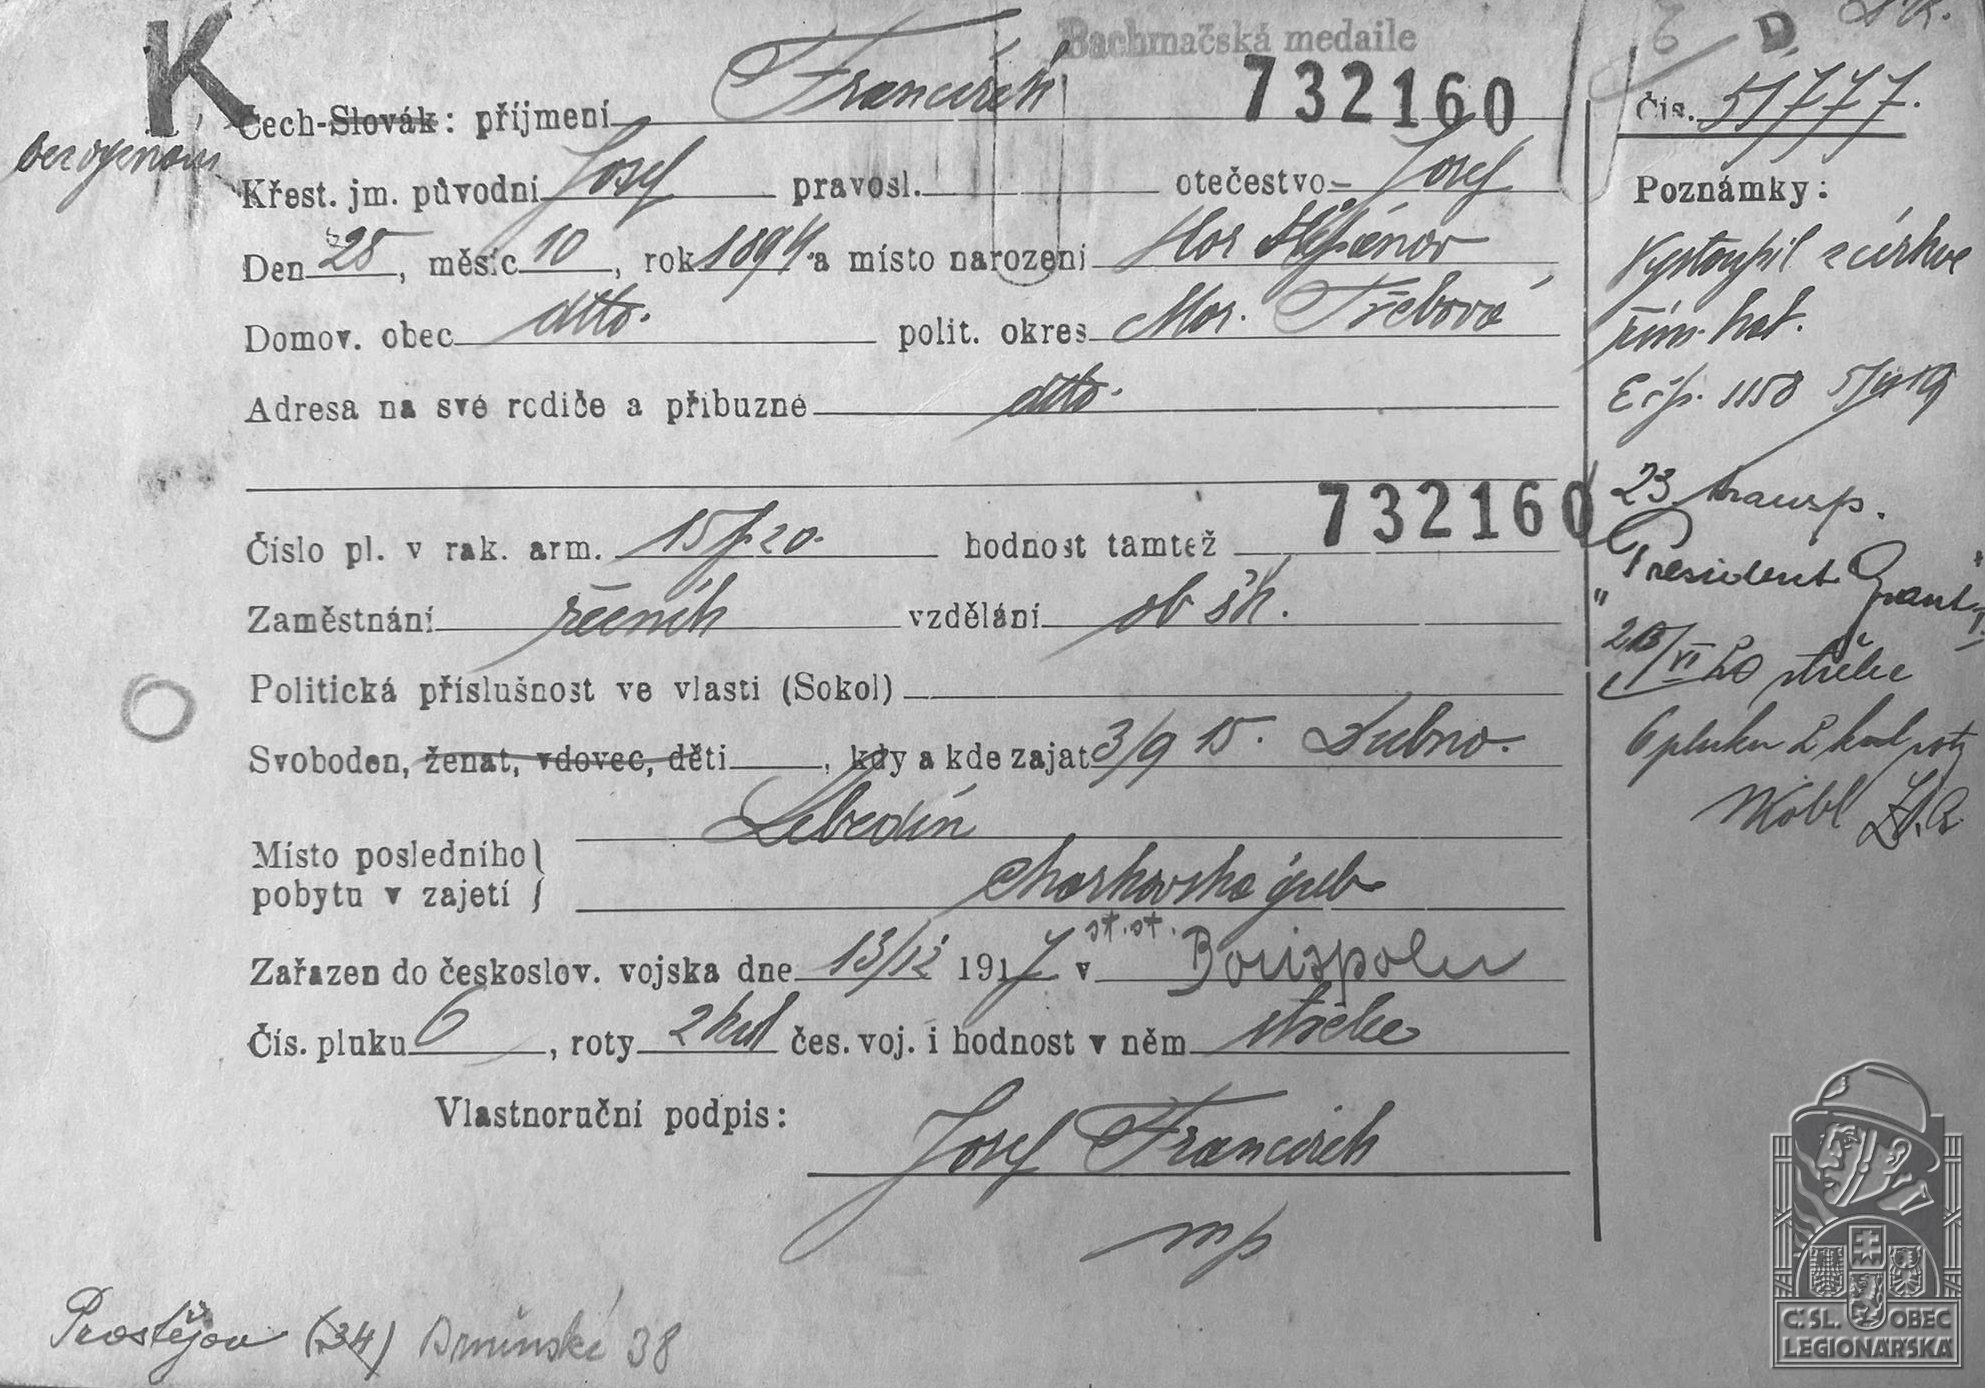 K
Bachmačská medaile
732160
Čech-Slovák: příjmení Francírek
Čís. 51777.
Křest. jm. původní Josef pravosl. otečestvo Josef
Den 28, měsíc 10, rok 1894 a místo narození Hor Štěpánov
Domov. obec dtto. polit. okres Mor. Třebová
Adresa na své rodiče a příbuzné dtto.
732160
Číslo pl. v rak. arm. 15 p. 20. hodnost tamtéž
Zaměstnání řezník vzdělání ob šk.
Politická příslušnost ve vlasti (Sokol)
Svoboden, ženat, vdovec, děti, kdy a kde zajat 3/9 15. Dubno.
Místo posledního pobytu v zajetí Lebedín
Charkovska gub
Zařazen do českoslov. vojska dne 13/12 1917 st. st. v Borispolu
Čís. pluku 6, roty 2 kul čes. voj. i hodnost v něm střelec
Vlastnoruční podpis: Josef Francírek
mp
Poznámky:
Vystoupil z církve
řím. kat.
E čp. 1158 5/VI 19
23 transp.
"President Grant"
/VI 20 střelec
6 pluku 2 kul roty
Prostějov (34) Brněnská 38
Č. SL. OBEC
LEGIONÁŘSKÁ